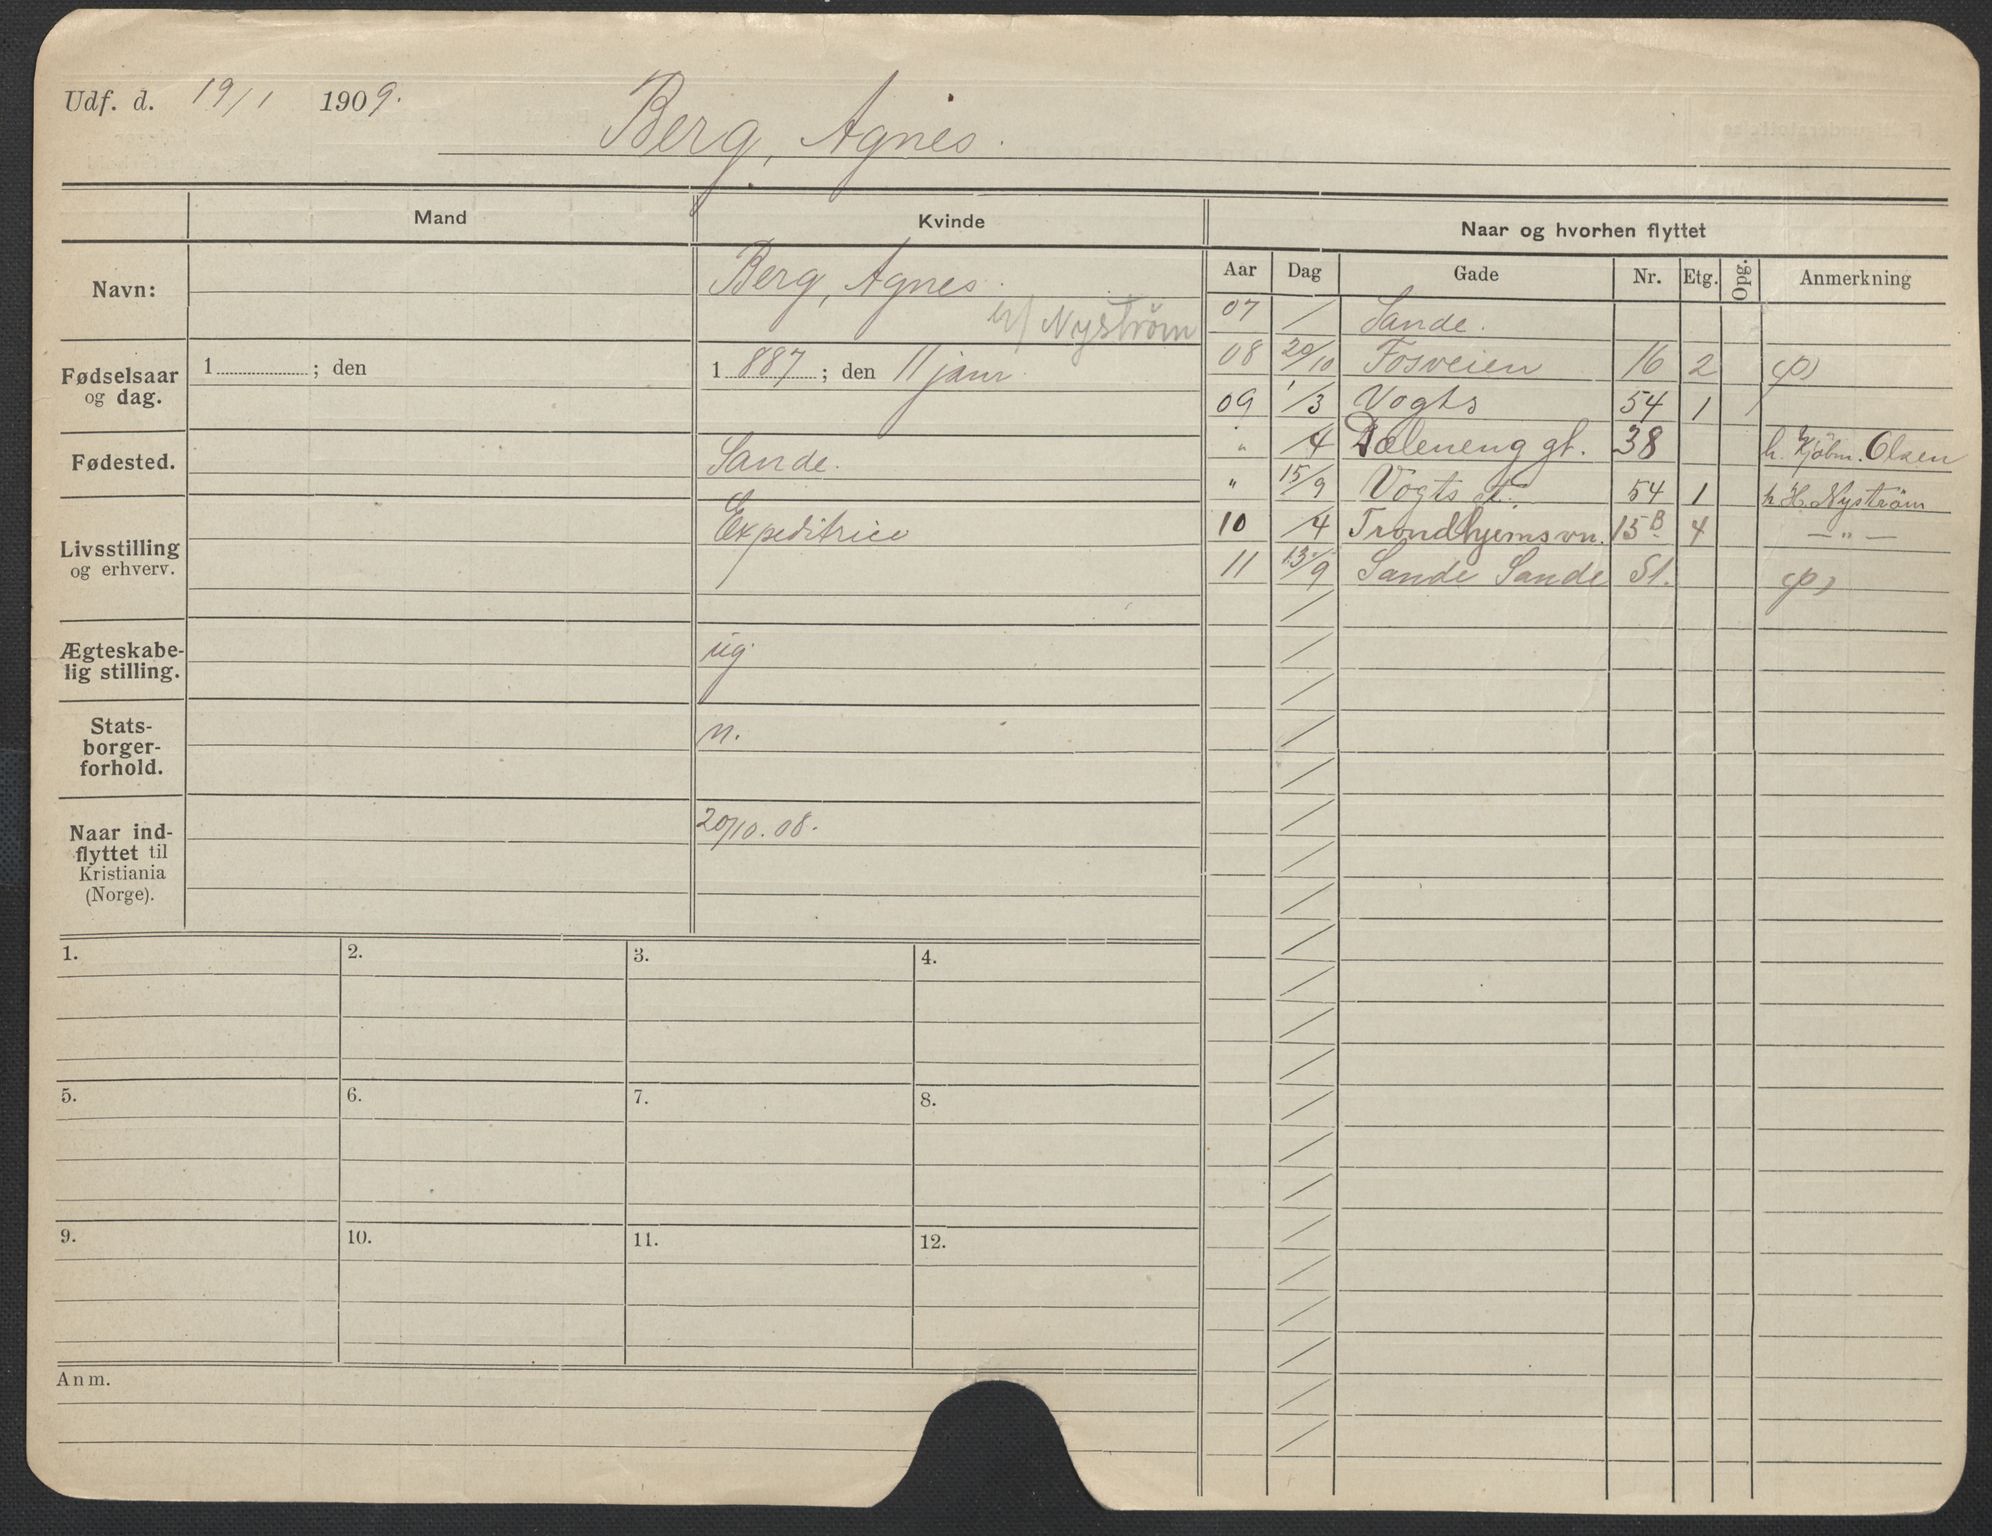 Udf. d. 19/1 1909.
Berg, Agnes.
Mand
Kvinde
Naar og hvorhen flyttet
Navn:
Berg, Agnes.
h/ Nyström
Fødselsaar
og dag.
1 ; den
1 887 ; den 11 janr
Fødested.
Sande.
Livsstilling
og erhverv.
Expeditrice
Ægteskabe-
lig stilling.
ug
Stats-
borger-
forhold.
n.
Naar ind-
flyttet til
Kristiania
(Norge).
20/10. 08.
Aar Dag Gade Nr. Etg. Opg. Anmerkning
07 / Sande.
08 20/10 Fosveien 16 2 (p)
09 1/3 Vogts 54 1
" /4 Dæleneng gt. 38 h. Kjøbm. Olsen
" 15/9 Vogts gt. 54 1 h. H. Nyström
10 /4 Trondhjemsvn. 15B 4 — " —
11 13/9 Sande Sande St. (p)
1. 2. 3. 4.
5. 6. 7. 8.
9. 10. 11. 12.
Anm.